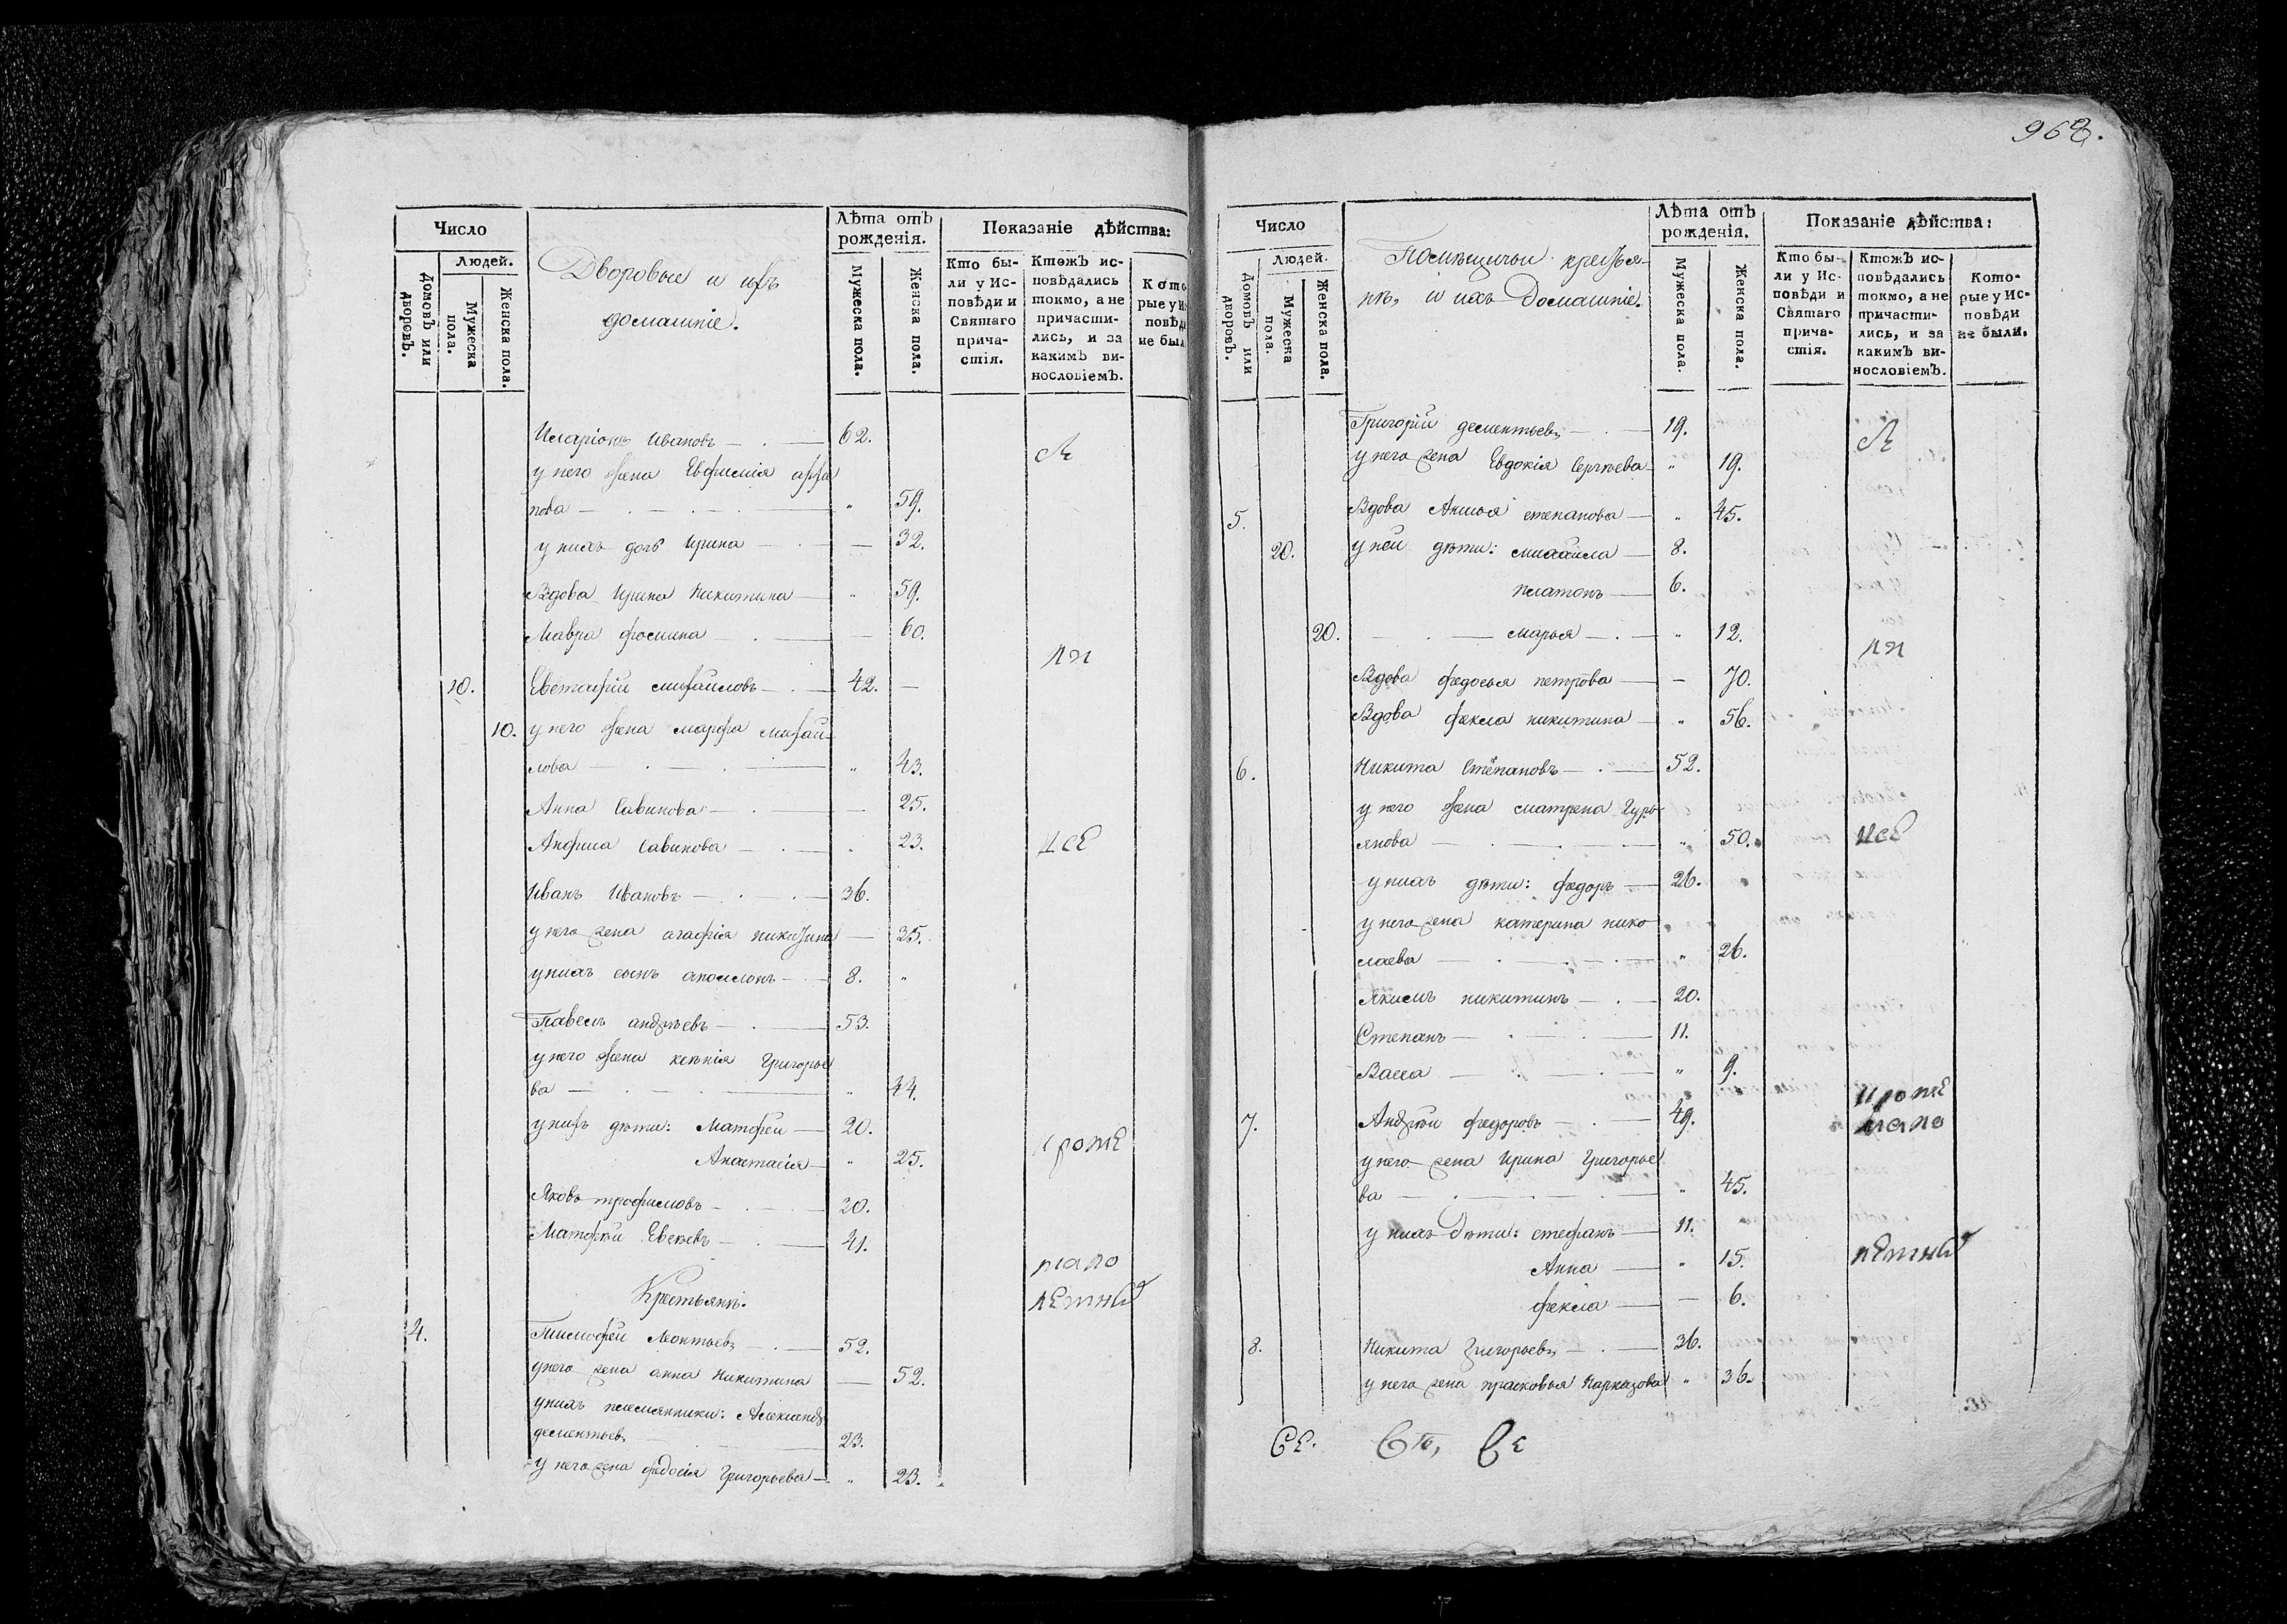 968.
Число
Людей.
Домовъ или дворовъ.
Мужеска пола.
Женска пола.
Дворовые и ихъ
домашніе.
Лѣта отъ рожденія.
Мужеска пола.
Женска пола.
Показаніе дѣйства:
Кто бы-
ли у Ис-
повѣди и
Святаго
прича-
стія.
Ктожъ ис-
повѣдались
токмо, а не
причасти-
лись, и за
какимъ ви-
нословіемъ.
Кото
рые у Ис
повѣди
не был
Иларіонъ Ивановъ — 62.
у него жена Евфимія
пова — „ 59.
у нихъ дочь Ирина — 32.
Вдова Ирина Никитина — „ 59.
Мавра фомина — 60.
10. Евстафій михайловъ — 42. —
10. у него жена марфа михай-
лова — „ 43.
Анна Савинова — 25.
Анфиса Савинова — „ 23.
Иванъ Ивановъ — 36.
у него жена агафія никитина — 35.
у нихъ сынъ аполлонъ — 8. „
Павелъ андреевъ — 53.
у него жена ксенія Григорье
ва — „ 44.
у нихъ дѣти: Матвѣй — 20.
Анастасія — „ 25.
Яковъ трофимовъ — 20.
Матвѣй — 41.
Крестьянѣ.
4. Тимофей Леонтьевъ — 52.
у него жена анна Никитина — 52.
у нихъ племянники: Александръ
дементьевъ — 23.
у него жена федосія Григорьева — „ 23.
Л
ли
исѣ
кромѣ
мало
лѣтныхъ
Число
Людей.
Домовъ или дворовъ.
Мужеска пола.
Женска пола.
Помѣщичьи крестья-
нѣ, и ихъ Домашніе.
Лѣта отъ рожденія.
Мужеска пола.
Женска пола.
Показаніе дѣйства:
Кто бы-
ли у Ис-
повѣди и
Святаго
прича-
стія.
Ктожъ ис-
повѣдались
токмо, а не
причасти-
лись, и за
какимъ ви-
нословіемъ.
Кото-
рые у Ис-
повѣди
не были.
Григорій дементьевъ — 19.
у него жена Евдокія Сергѣева — „ 19.
5. Вдова Анисья степанова — „ 45.
20. у ней дѣти: михаила — 8.
платонъ — 6.
20. — марья — „ 12.
Вдова федосья петрова — 70.
Вдова фекла никитина — „ 56.
6. Никита Степановъ — 52.
у него жена матрена Гурь
янова — „ 50.
у нихъ дѣти: федоръ — 26.
у него жена катерина нико
лаева — „ 26.
Якимъ никитинъ — 20.
Степанъ — 11.
Васса — „ 9.
7. Андрѣй федоровъ — 49.
у него жена Ирина Григорье
ва — „ 45.
у нихъ Дѣти: стефанъ — 11.
Анна — „ 15.
фекла — 6.
8. Никита Григорьевъ — 36.
у него жена прасковья — „ 36.